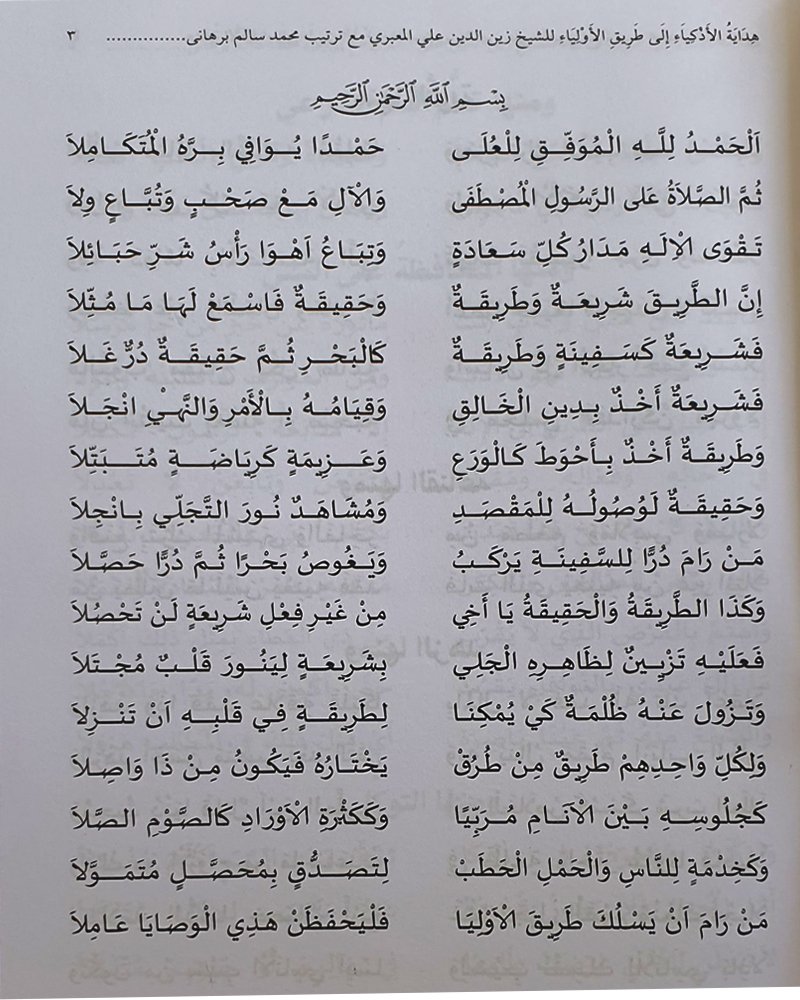 هِدَايَةُ الأَذْكِيَاءِ إِلَى طَرِيقِ الأَوْلِيَاءِ للشيخ زين الدين علي المعبري مع ترتيب محمد سالم برهانى............... ٣
بِسْمِ اللَّهِ الرَّحْمَٰنِ الرَّحِيمِ
اَلْحَمْدُ لِلَّهِ الْمُوَفِّقِ لِلْعُلَى حَمْدًا يُوَافِي بِرَّهُ الْمُتَكَامِلاَ
ثُمَّ الصَّلاَةُ عَلَى الرَّسُولِ الْمُصْطَفَى وَالْآلِ مَعْ صَحْبٍ وَتُبَّاعٍ وِلاَ
تَقْوَى الْاِلَهِ مَدَارُ كُلِّ سَعَادَةٍ وَتِبَاعُ اَهْوَا رَأْسُ شَرِّ حَبَائِلاَ
إِنَّ الطَّرِيقَ شَرِيعَةٌ وَطَرِيقَةٌ وَحَقِيقَةٌ فَاسْمَعْ لَهَا مَا مُثِّلاَ
فَشَرِيعَةٌ كَسَفِينَةٍ وَطَرِيقَةٌ كَالْبَحْرِ ثُمَّ حَقِيقَةٌ دُرٌّ غَلاَ
فَشَرِيعَةٌ أَخْذٌ بِدِينِ الْخَالِقِ وَقِيَامُهُ بِالْأَمْرِ وَالنَّهْيِ انْجَلاَ
وَطَرِيقَةٌ أَخْذٌ بِأَحْوَطَ كَالْوَرَعِ وَعَزِيمَةٍ كَرِيَاضَةٍ مُتَبَتِّلاَ
وَحَقِيقَةٌ لَوُصُولُهُ لِلْمَقْصَدِ وَمُشَاهَدٌ نُورَ التَّجَلِّي بِانْجِلاَ
مَنْ رَامَ دُرًّا لِلسَّفِينَةِ يَرْكَبُ وَيَغُوصُ بَحْرًا ثُمَّ دُرًّا حَصَّلاَ
وَكَذَا الطَّرِيقَةُ وَالْحَقِيقَةُ يَا أَخِي مِنْ غَيْرِ فِعْلِ شَرِيعَةٍ لَنْ تَحْصُلاَ
فَعَلَيْهِ تَزْيِينٌ لِظَاهِرِهِ الْجَلِي بِشَرِيعَةٍ لِيَنُورَ قَلْبٌ مُجْتَلاَ
وَتَزُولَ عَنْهُ ظُلْمَةٌ كَيْ يُمْكِنَا لِطَرِيقَةٍ فِي قَلْبِهِ اَنْ تَنْزِلاَ
وَلِكُلِّ وَاحِدِهِمْ طَرِيقٌ مِنْ طُرُقْ يَخْتَارُهُ فَيَكُونُ مِنْ ذَا وَاصِلاَ
كَجُلُوسِهِ بَيْنَ الْاَنَامِ مُرَبِّيًا وَكَكَثْرَةِ الْاَوْرَادِ كَالصَّوْمِ الصَّلاَ
وَكَخِدْمَةٍ لِلنَّاسِ وَالْحَمْلِ الْحَطَبْ لِتَصَدُّقٍ بِمُحَصَّلٍ مُتَمَوَّلاَ
مَنْ رَامَ اَنْ يَسْلُكَ طَرِيقَ الْاَوْلِيَا فَلْيَحْفَظَنْ هَذِي الْوَصَايَا عَامِلاَ